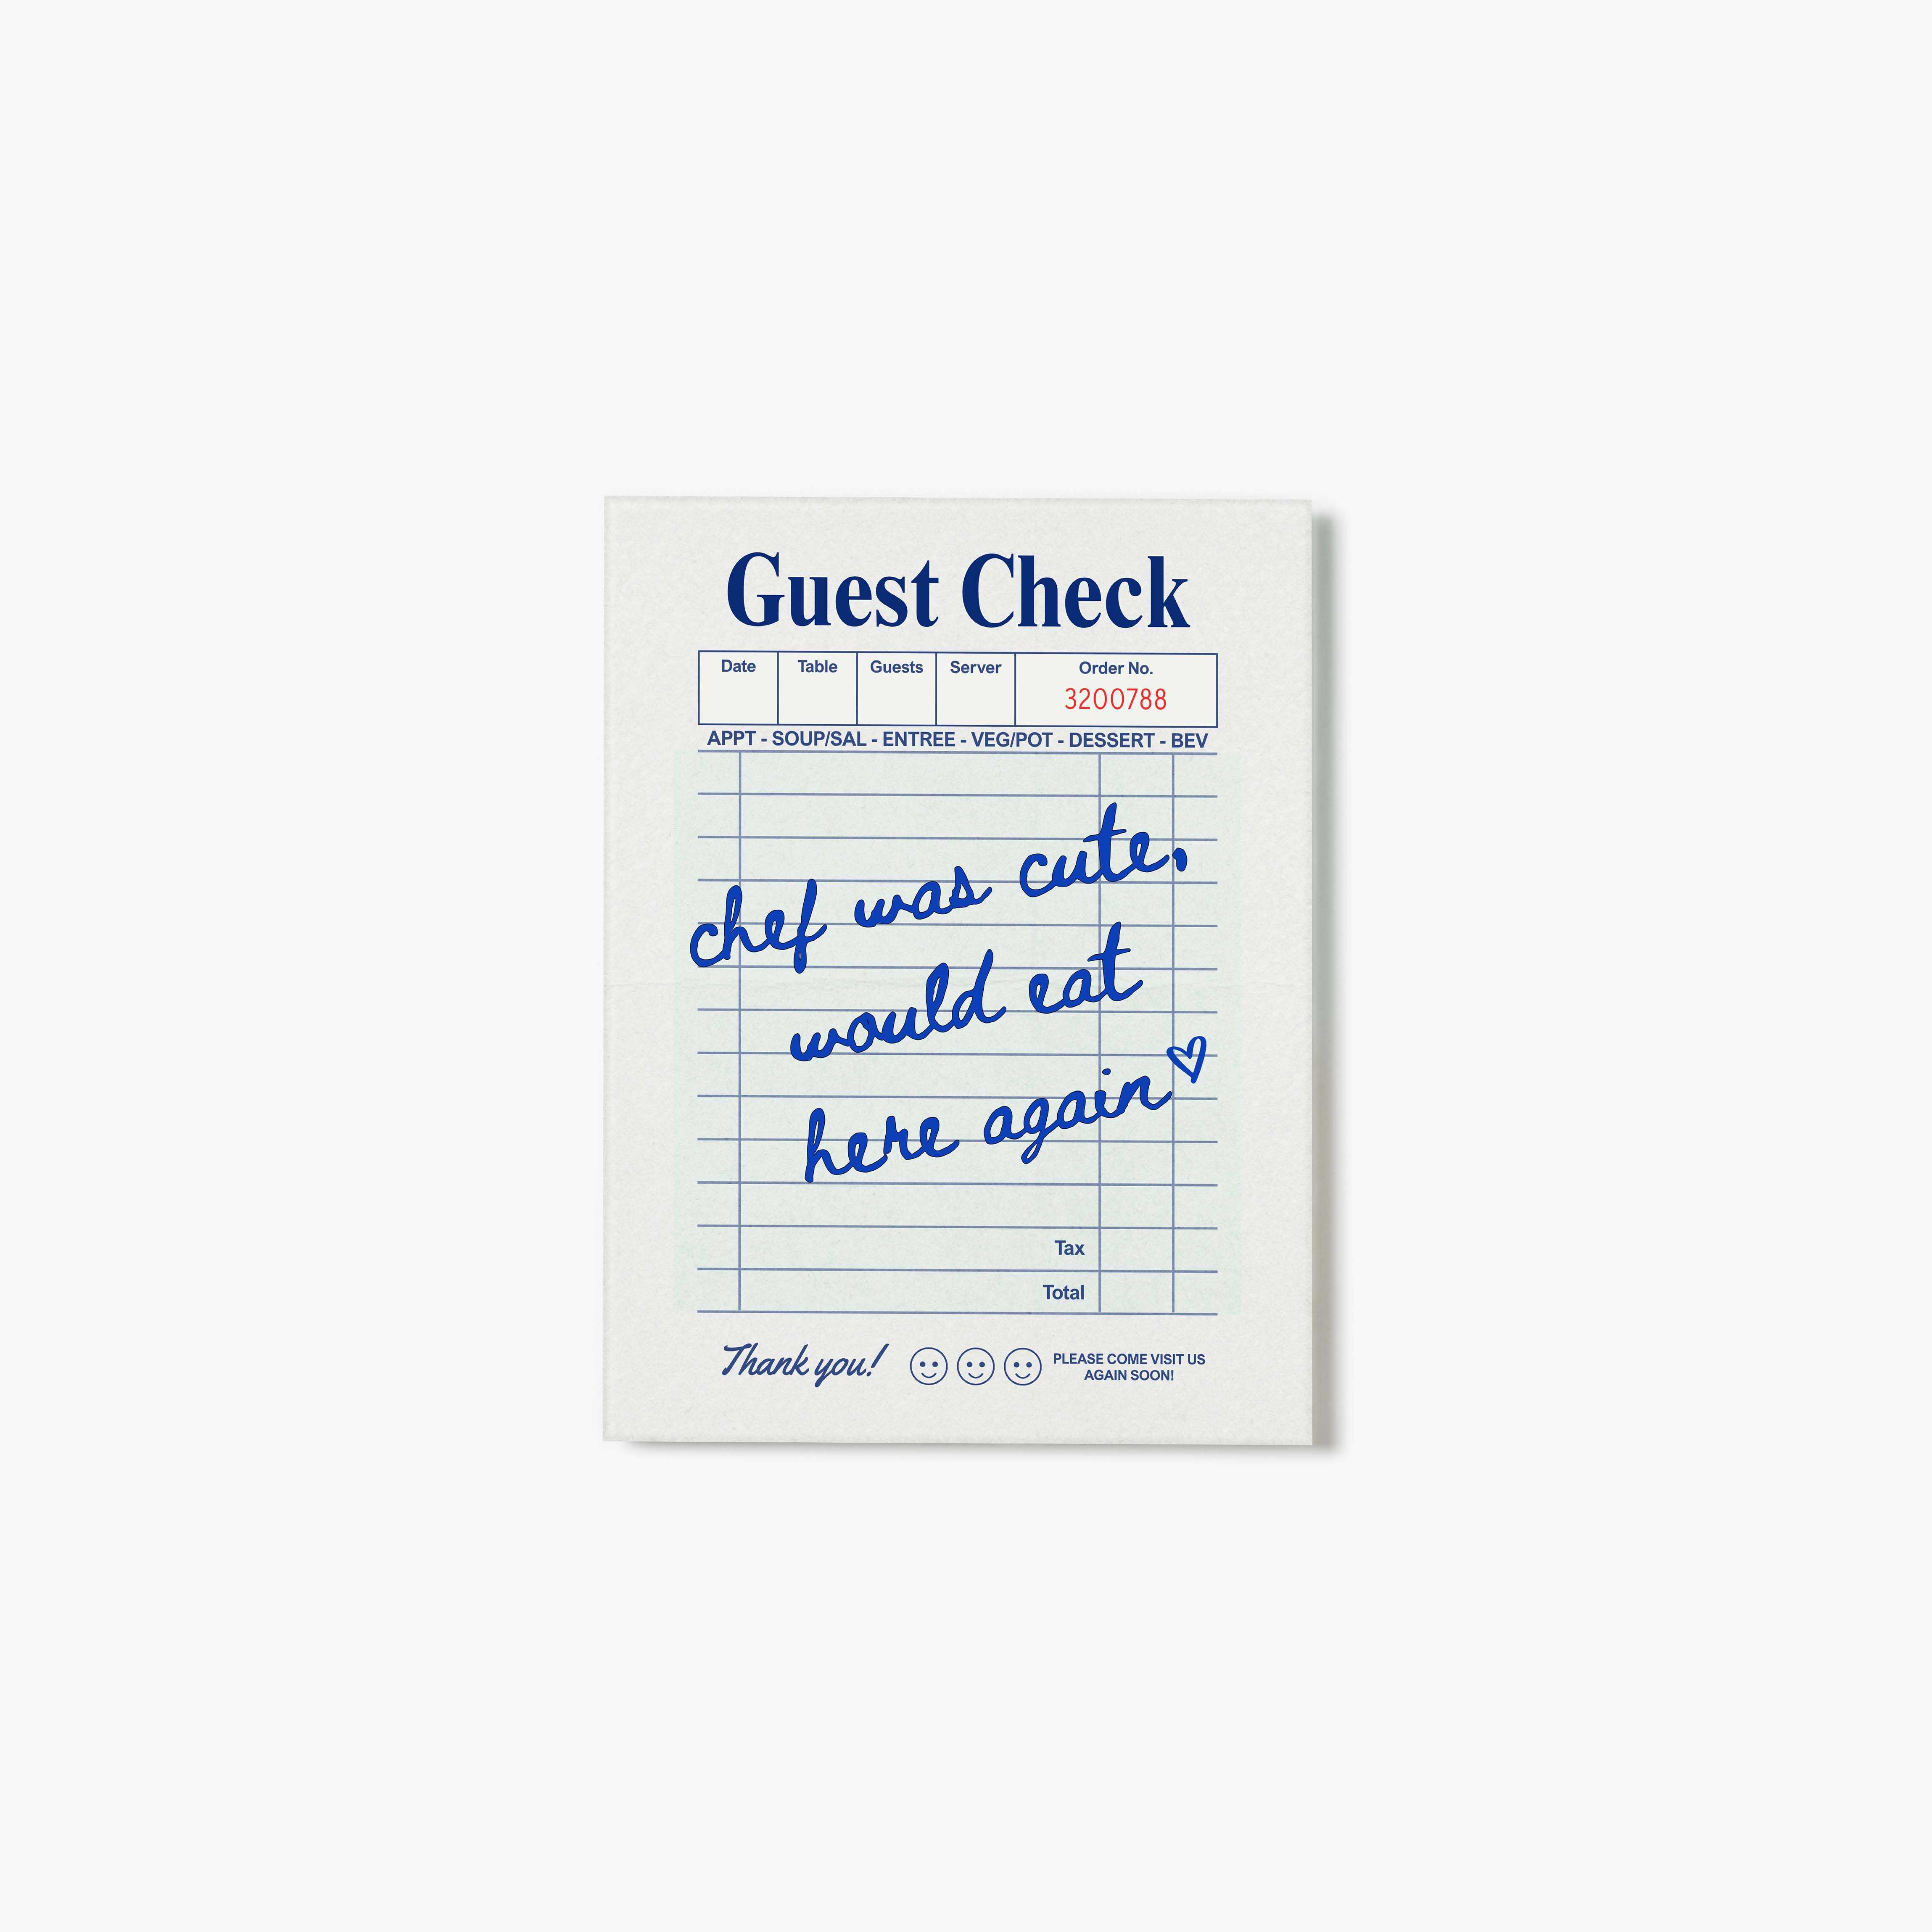 Guest Check
Date Table Guests Server Order No.
3200788
APPT - SOUP/SAL - ENTREE - VEG/POT - DESSERT - BEV
chef was cute,
would eat
here again
Tax
Total
Thank you! PLEASE COME VISIT US
AGAIN SOON!